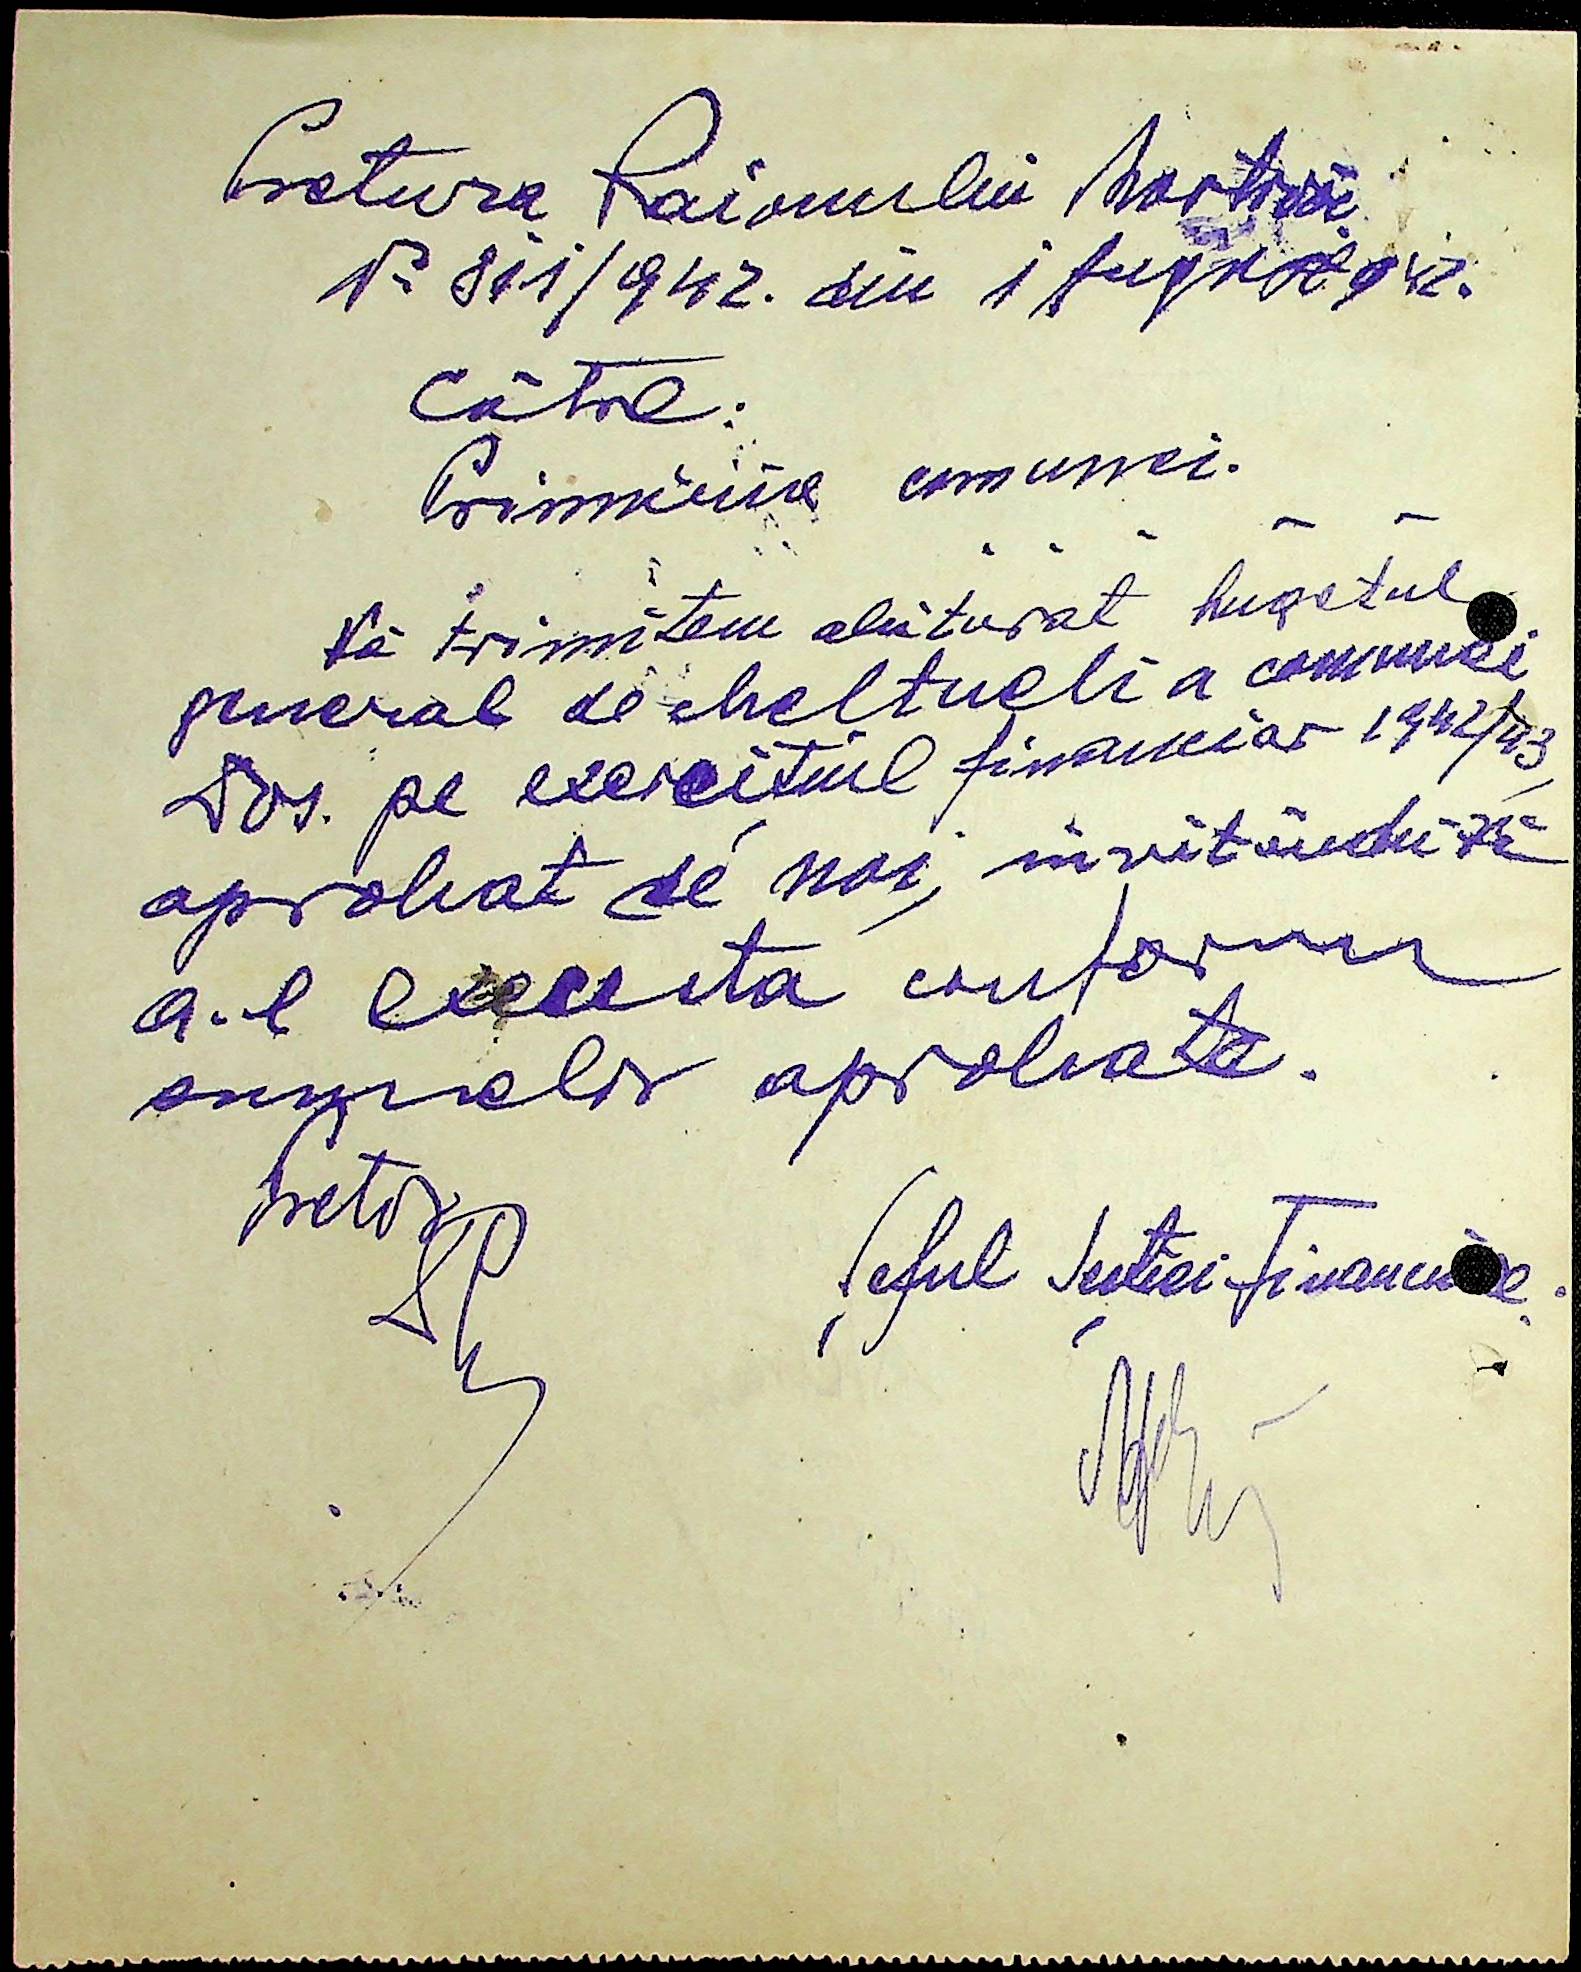 Pretura Raionului
No 811/942. din 1 942.
Către:
Primăria comunei. - - - - -
Vă trimitem alăturat bugetul
general de cheltueli a comunei
Dvs. pe exercițiul financiar 1942/43,
aprobat de noi, invitându-vă
a-l executa conform
sumelor aprobate.
Pretor
Șeful Secției Financiare.